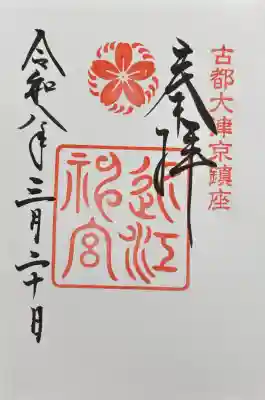 古都大津京鎮座
奉拝
近江神宮
令和八年三月二十日